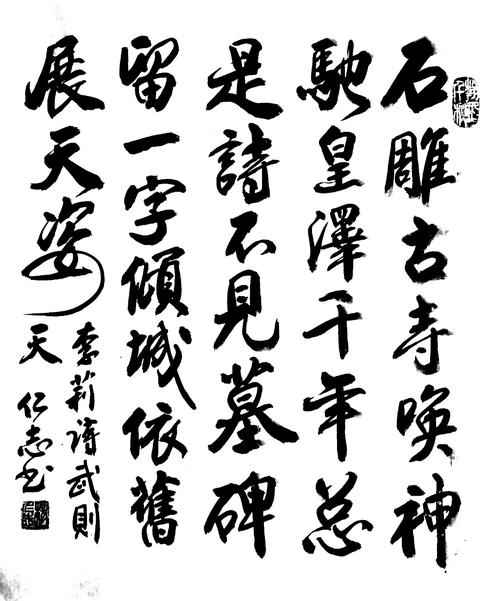 石雕古寺唤神
馳皇澤千年总
是詩不見墓碑
留一字傾城依舊
展天姿
李莉诗武則
天 仁志书